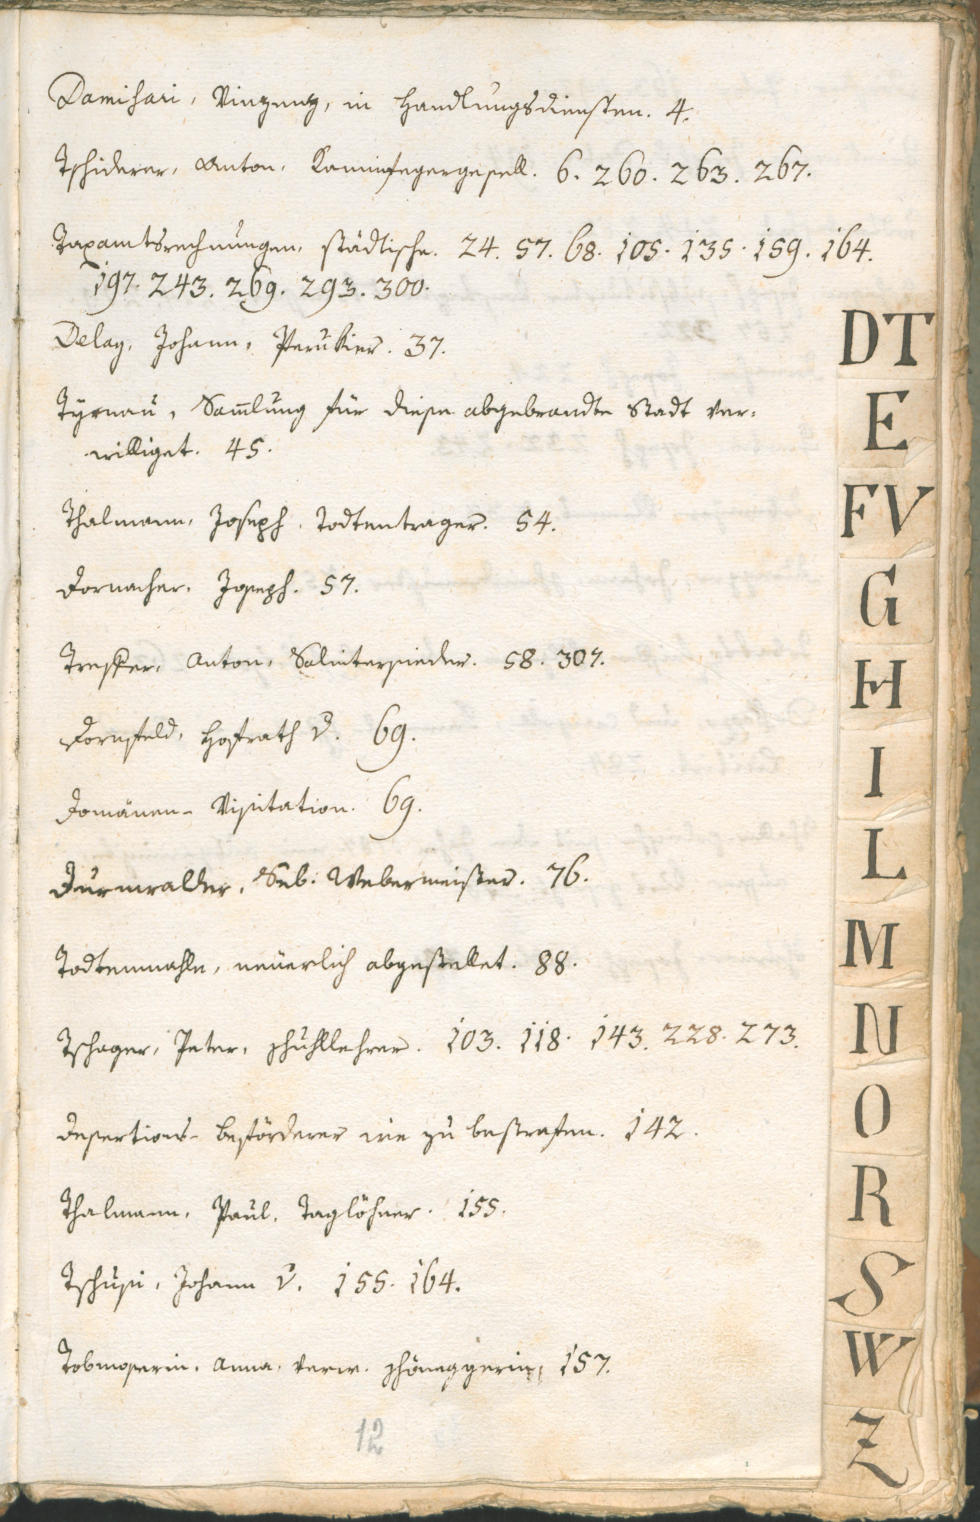 Damihari, Vinzenz, in Handlungsdiensten. 4.
Tschiderer, Anton, Kaminfegergesell. 6. 260. 263. 267.
Taxamtsrechnungen, städtische. 24. 57. 68. 105. 135. 159. 164.
197. 243. 269. 293. 300.
Delag, Johann, Perukier. 37.
Tÿrnau, Sam̅lung für diese abgebrandte Stadt ver-
williget. 45.
Thalmann, Joseph, Todtentrager. 54.
Dornacher, Joseph. 57.
Tresser, Anton, Saliniterssieder. 58. 307.
Dornfeld, Hofrath v. 69.
Domänen-Visitation. 69.
Durnwalder, Seb. Webermeister. 76.
Todtenmahle, neuerlich abgestellet. 88.
Tschager, Peter, Schullehrer. 103. 118. 143. 228. 273.
Desertions-Beförderer wie zu bestrafen. 142.
Thalmann, Paul, Taglöhner. 155.
Tschusi, Johann v. 155. 164.
Tobmoserin, Anna, verw. Schöneggerin, 157.
12
DT
E
FV
G
H
I
L
M
N
O
R
S
W
Z